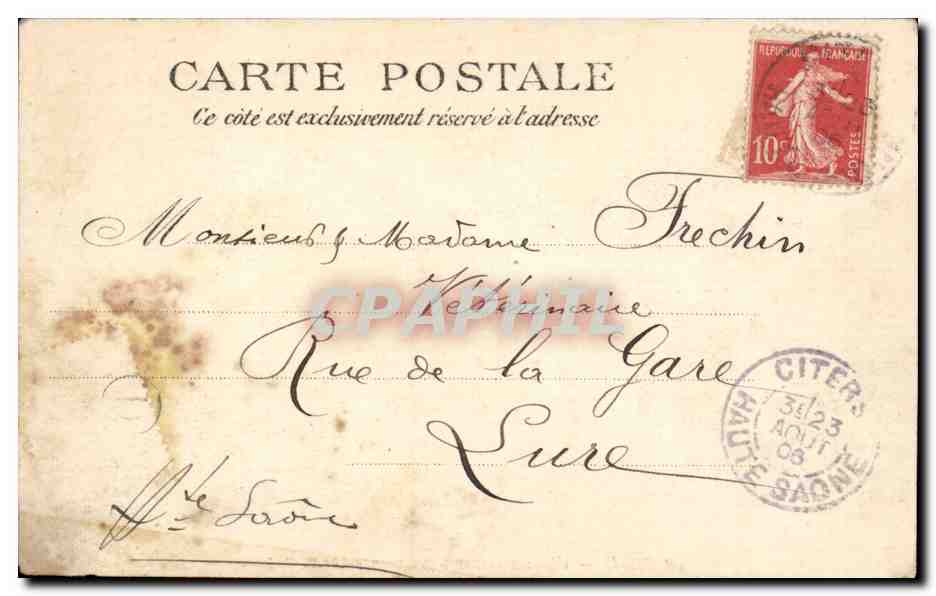 REPUBLIQUE FRANÇAISE
10c
POSTES
CARTE POSTALE
Ce côté est exclusivement réservé à l'adresse
Monsieur & Madame Frechin
Vétérinaire
CPAPHIL
Rue de la Gare
Lure
Hte Saône
CITERS
3E/23
AOUT
06
HAUTE SAONE